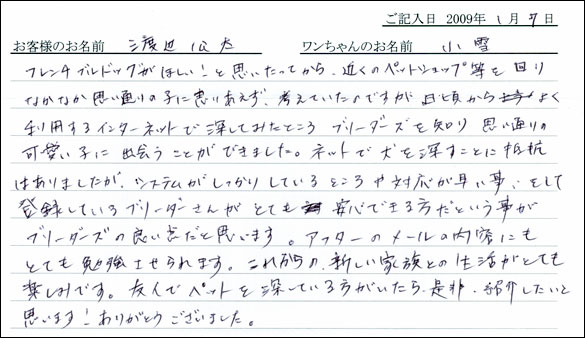 ご記入日 2009年 1月 7日
お客様のお名前 渡辺公太 ワンちゃんのお名前 小雪
フレンチブルドッグがほしい！と思いたってから、近くのペットショップ等を回り
なかなか思い通りの子に出会えず、考えていたのですが 日頃から よく
利用するインターネットで探してみたところ ブリーダーズを知り 思い通りの
可愛い子に出会うことができました。ネットで犬を探すことに抵抗
はありましたが、システムがしっかりしているところや対応が早い事、そして
登録しているブリーダーさんがとても 安心できる方だという事が
ブリーダーズの良い点だと思います。アフターのメールの内容にも
とても勉強させられます。これからの、新しい家族との生活がとても
楽しみです。友人でペットを探している方がいたら、是非、紹介したいと
思います！ありがとうございました。